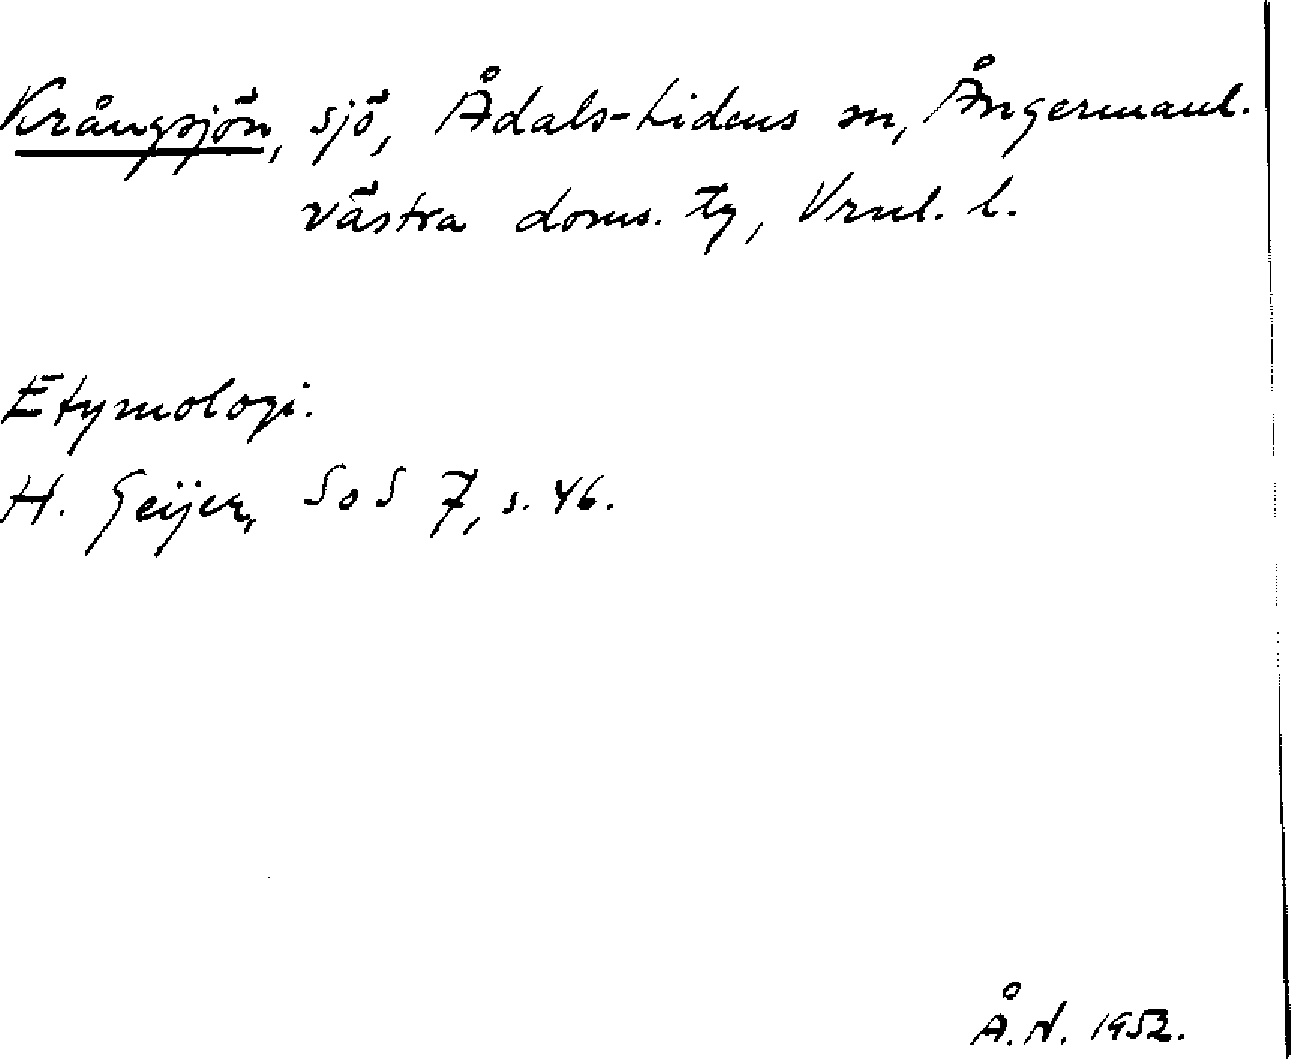 Krångsjön, sjö, Ådals-Lidens sn, Ångermanl.
västra doms. tg, Vrnl. l.
Etymologi.
H. Geijer, SoS 7, s. 46.
Å.N. 1952.